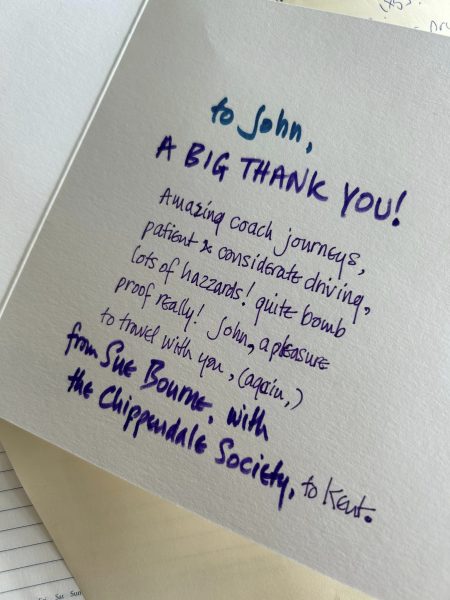 to John,
A BIG THANK YOU!
Amazing coach journeys,
patient & considerate driving,
lots of hazzards! quite bomb
proof really! John, a pleasure
to travel with you, (again,)
from Sue Bourne, with
the Chippendale Society, to Kent.
Sat Sun